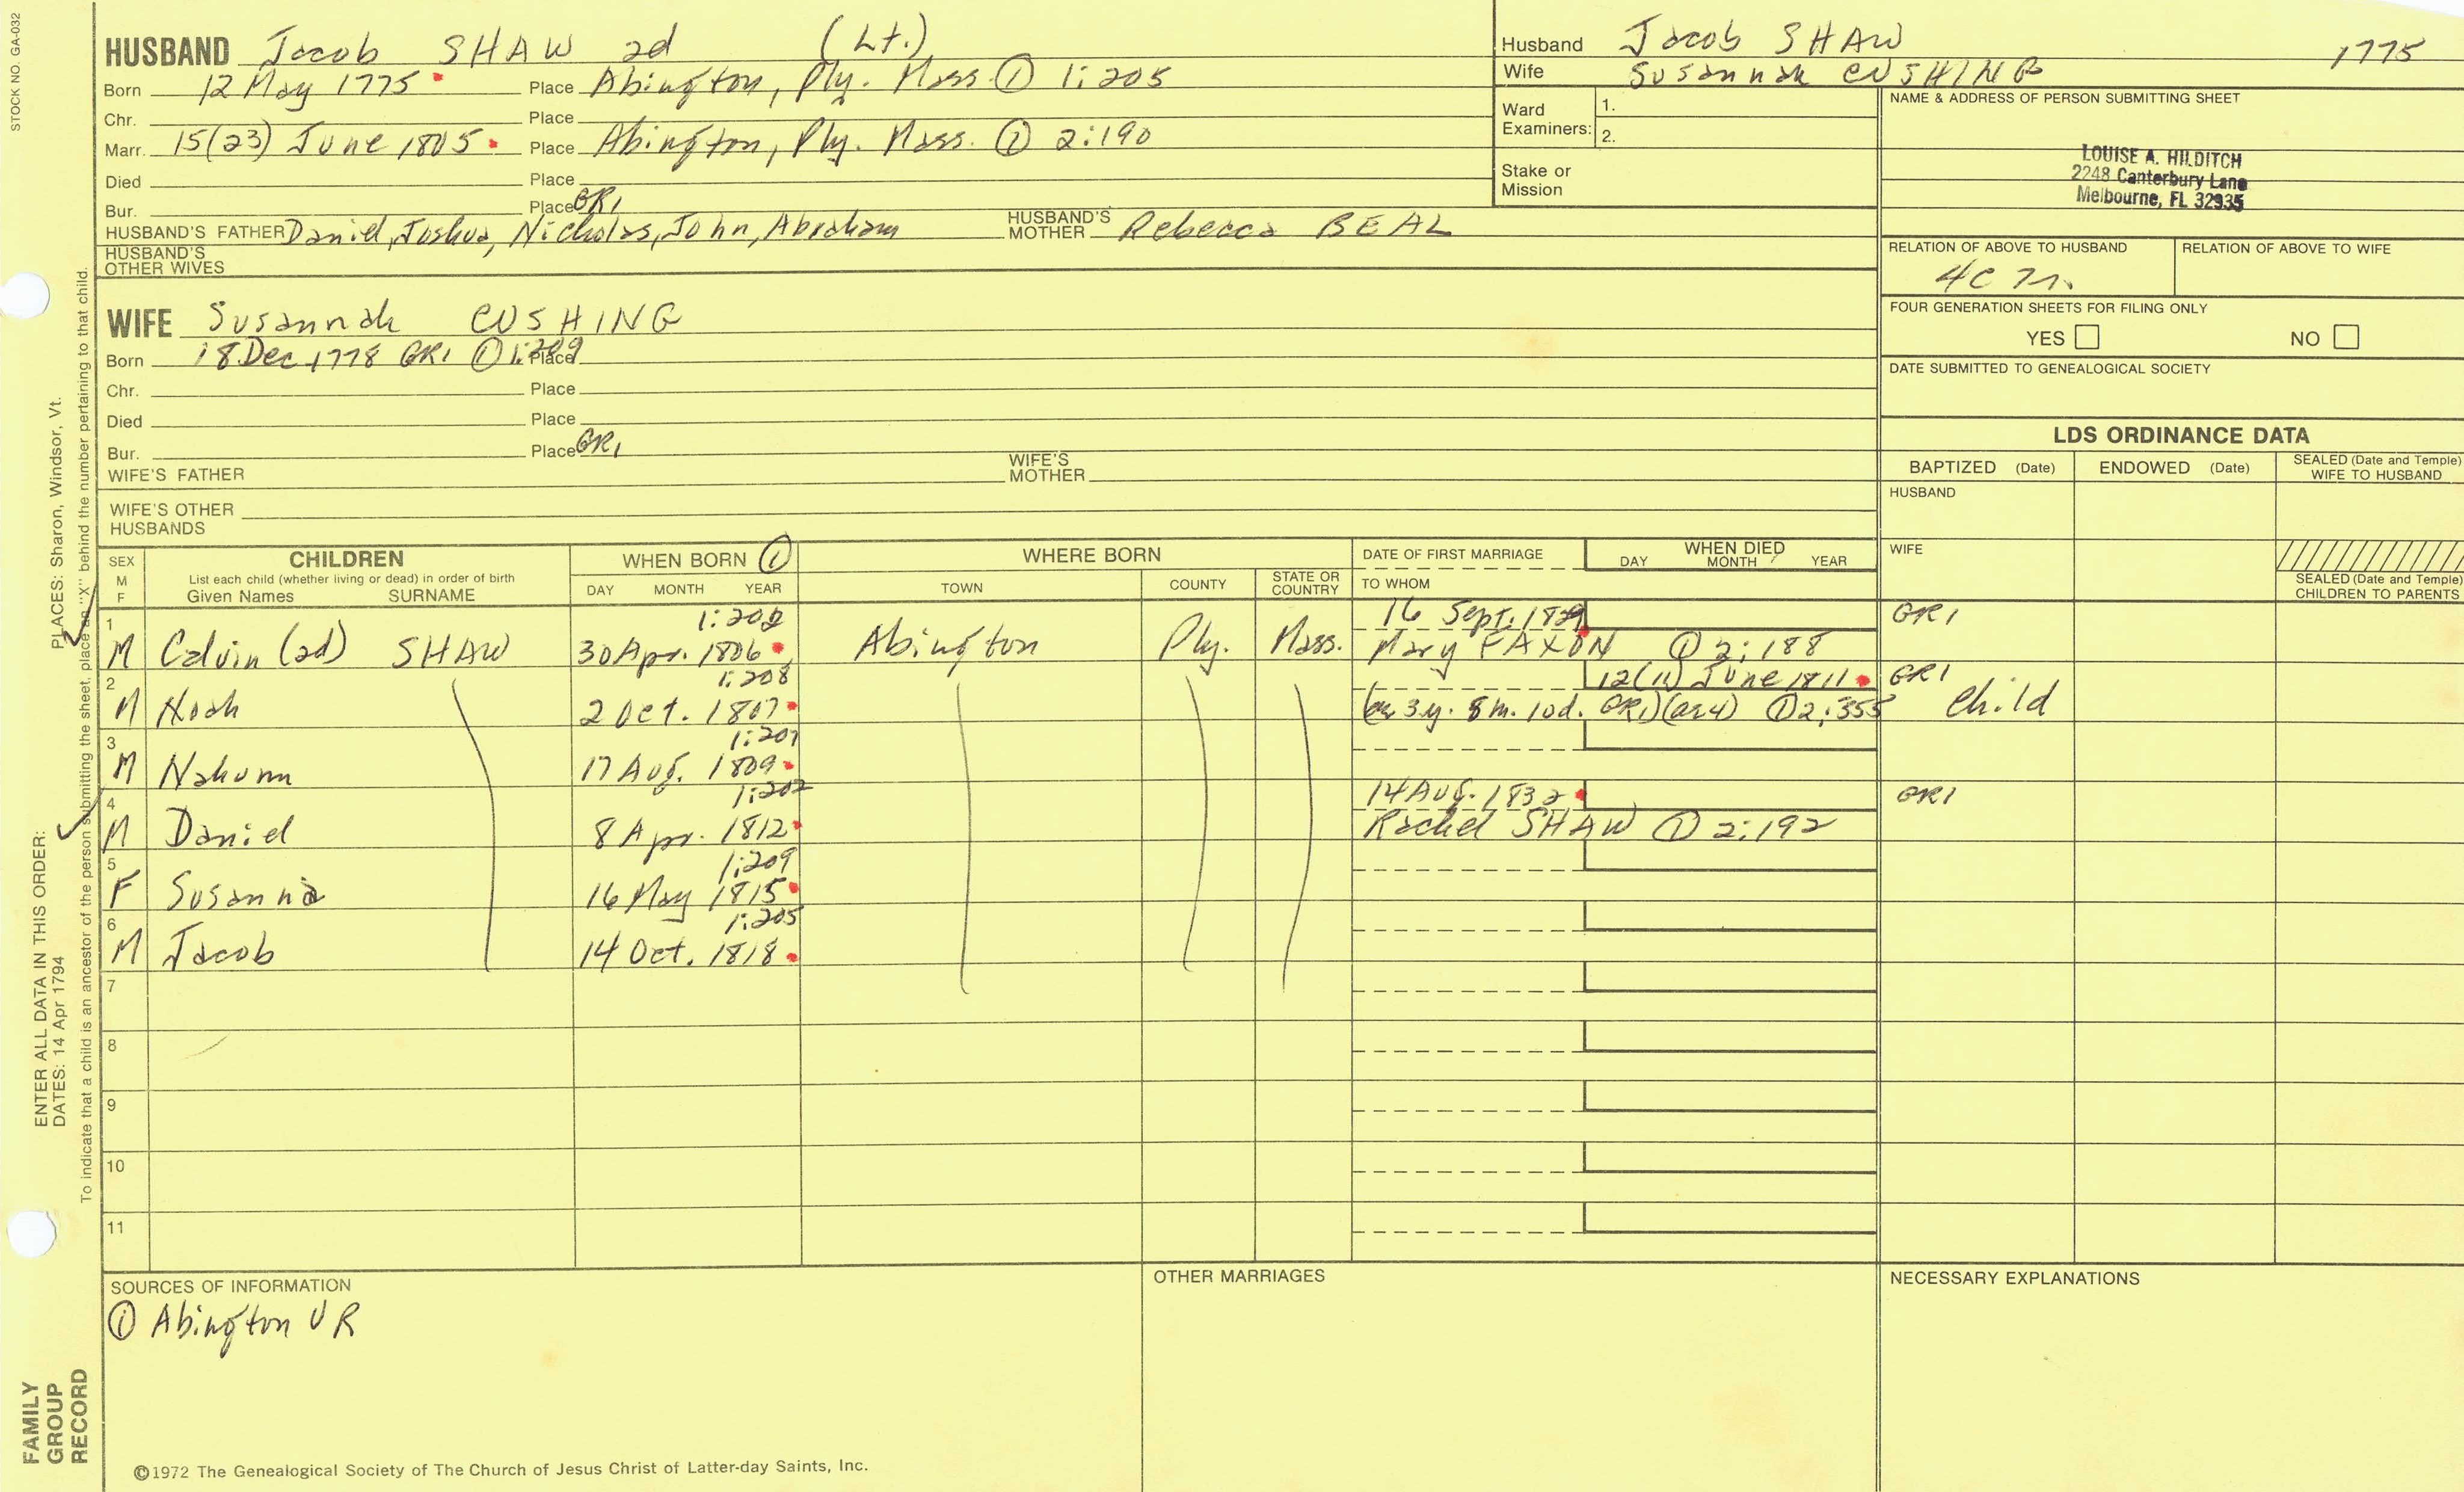 STOCK NO. GA-032
HUSBAND Jacob SHAW 2d (Lt.)
Born 12 May 1775 Place Abington, Ply. Mass. ① 1:205
Chr. Place
Marr. 15(23) June 1805 Place Abington, Ply. Mass. ① 2:190
Died Place
Bur. Place GR1
HUSBAND'S FATHER Daniel, Joshua, Nicholas, John, Abraham HUSBAND'S MOTHER Rebecca BEAL
HUSBAND'S OTHER WIVES
Husband Jacob SHAW 1775
Wife Susannah CUSHING
Ward Examiners: 1.
2.
Stake or Mission
NAME & ADDRESS OF PERSON SUBMITTING SHEET
LOUISE A. HILDITCH
2248 Canterbury Lane
Melbourne, FL 32935
RELATION OF ABOVE TO HUSBAND RELATION OF ABOVE TO WIFE
FOUR GENERATION SHEETS FOR FILING ONLY
YES NO
DATE SUBMITTED TO GENEALOGICAL SOCIETY
WIFE Susannah CUSHING
Born 18 Dec 1778 GR1 ① 1:209 Place
Chr. Place
Died Place
Bur. Place GR1
WIFE'S FATHER WIFE'S MOTHER
WIFE'S OTHER HUSBANDS
LDS ORDINANCE DATA
BAPTIZED (Date) ENDOWED (Date) SEALED (Date and Temple) WIFE TO HUSBAND
HUSBAND
WIFE
SEALED (Date and Temple) CHILDREN TO PARENTS
SEX M F
CHILDREN
List each child (whether living or dead) in order of birth
Given Names SURNAME
WHEN BORN ①
DAY MONTH YEAR
WHERE BORN
TOWN COUNTY STATE OR COUNTRY
DATE OF FIRST MARRIAGE
TO WHOM
WHEN DIED
DAY MONTH YEAR
1 1:202 16 Sept. 1829 GR1
M Calvin (2d) SHAW 30 Apr. 1806 Abington Ply. Mass. Mary FAXON ① 2:188
2 1:208 12(11) June 1811 GR1
M Noah 2 Oct. 1807 3y. 8m. 10d. GR1) (ae 4) ① 2:355 Child
3 1:207
M Nahum 17 Aug. 1809
4 1:202 14 Aug. 1832 GR1
M Daniel 8 Apr. 1812 Rachel SHAW ① 2:192
5 1:209
F Susanna 16 May 1815
6 1:205
M Jacob 14 Oct. 1818
7
8
9
10
11
SOURCES OF INFORMATION
① Abington VR
OTHER MARRIAGES
NECESSARY EXPLANATIONS
©1972 The Genealogical Society of The Church of Jesus Christ of Latter-day Saints, Inc.
ENTER ALL DATA IN THIS ORDER:
DATES: 14 Apr 1794 PLACES: Sharon, Windsor, Vt.
To indicate that a child is an ancestor of the person submitting the sheet, place an "X" behind the number pertaining to that child.
FAMILY
GROUP
RECORD